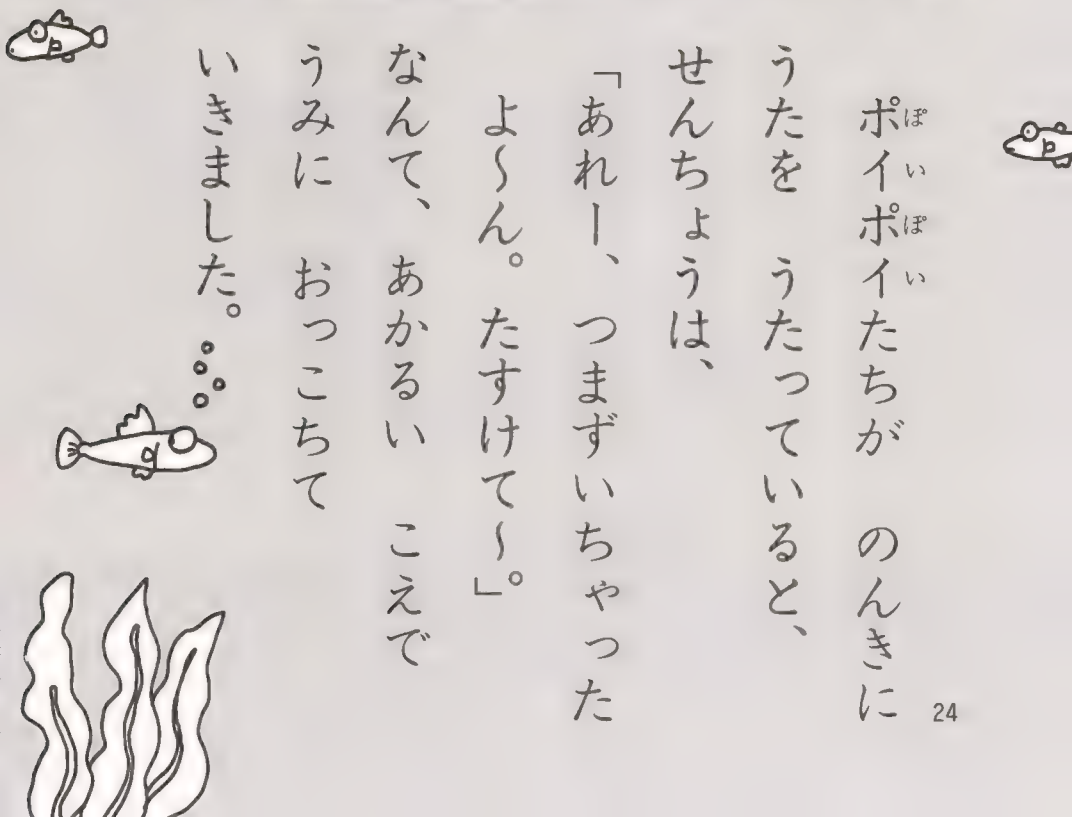 ポイポイたちが　のんきに
ぽいぽい
うたを　うたっていると、
せんちょうは、
「あれー、つまずいちゃった
よ〜ん。たすけて〜。」
なんて、あかるい　こえで
うみに　おっこちて
いきました。
24